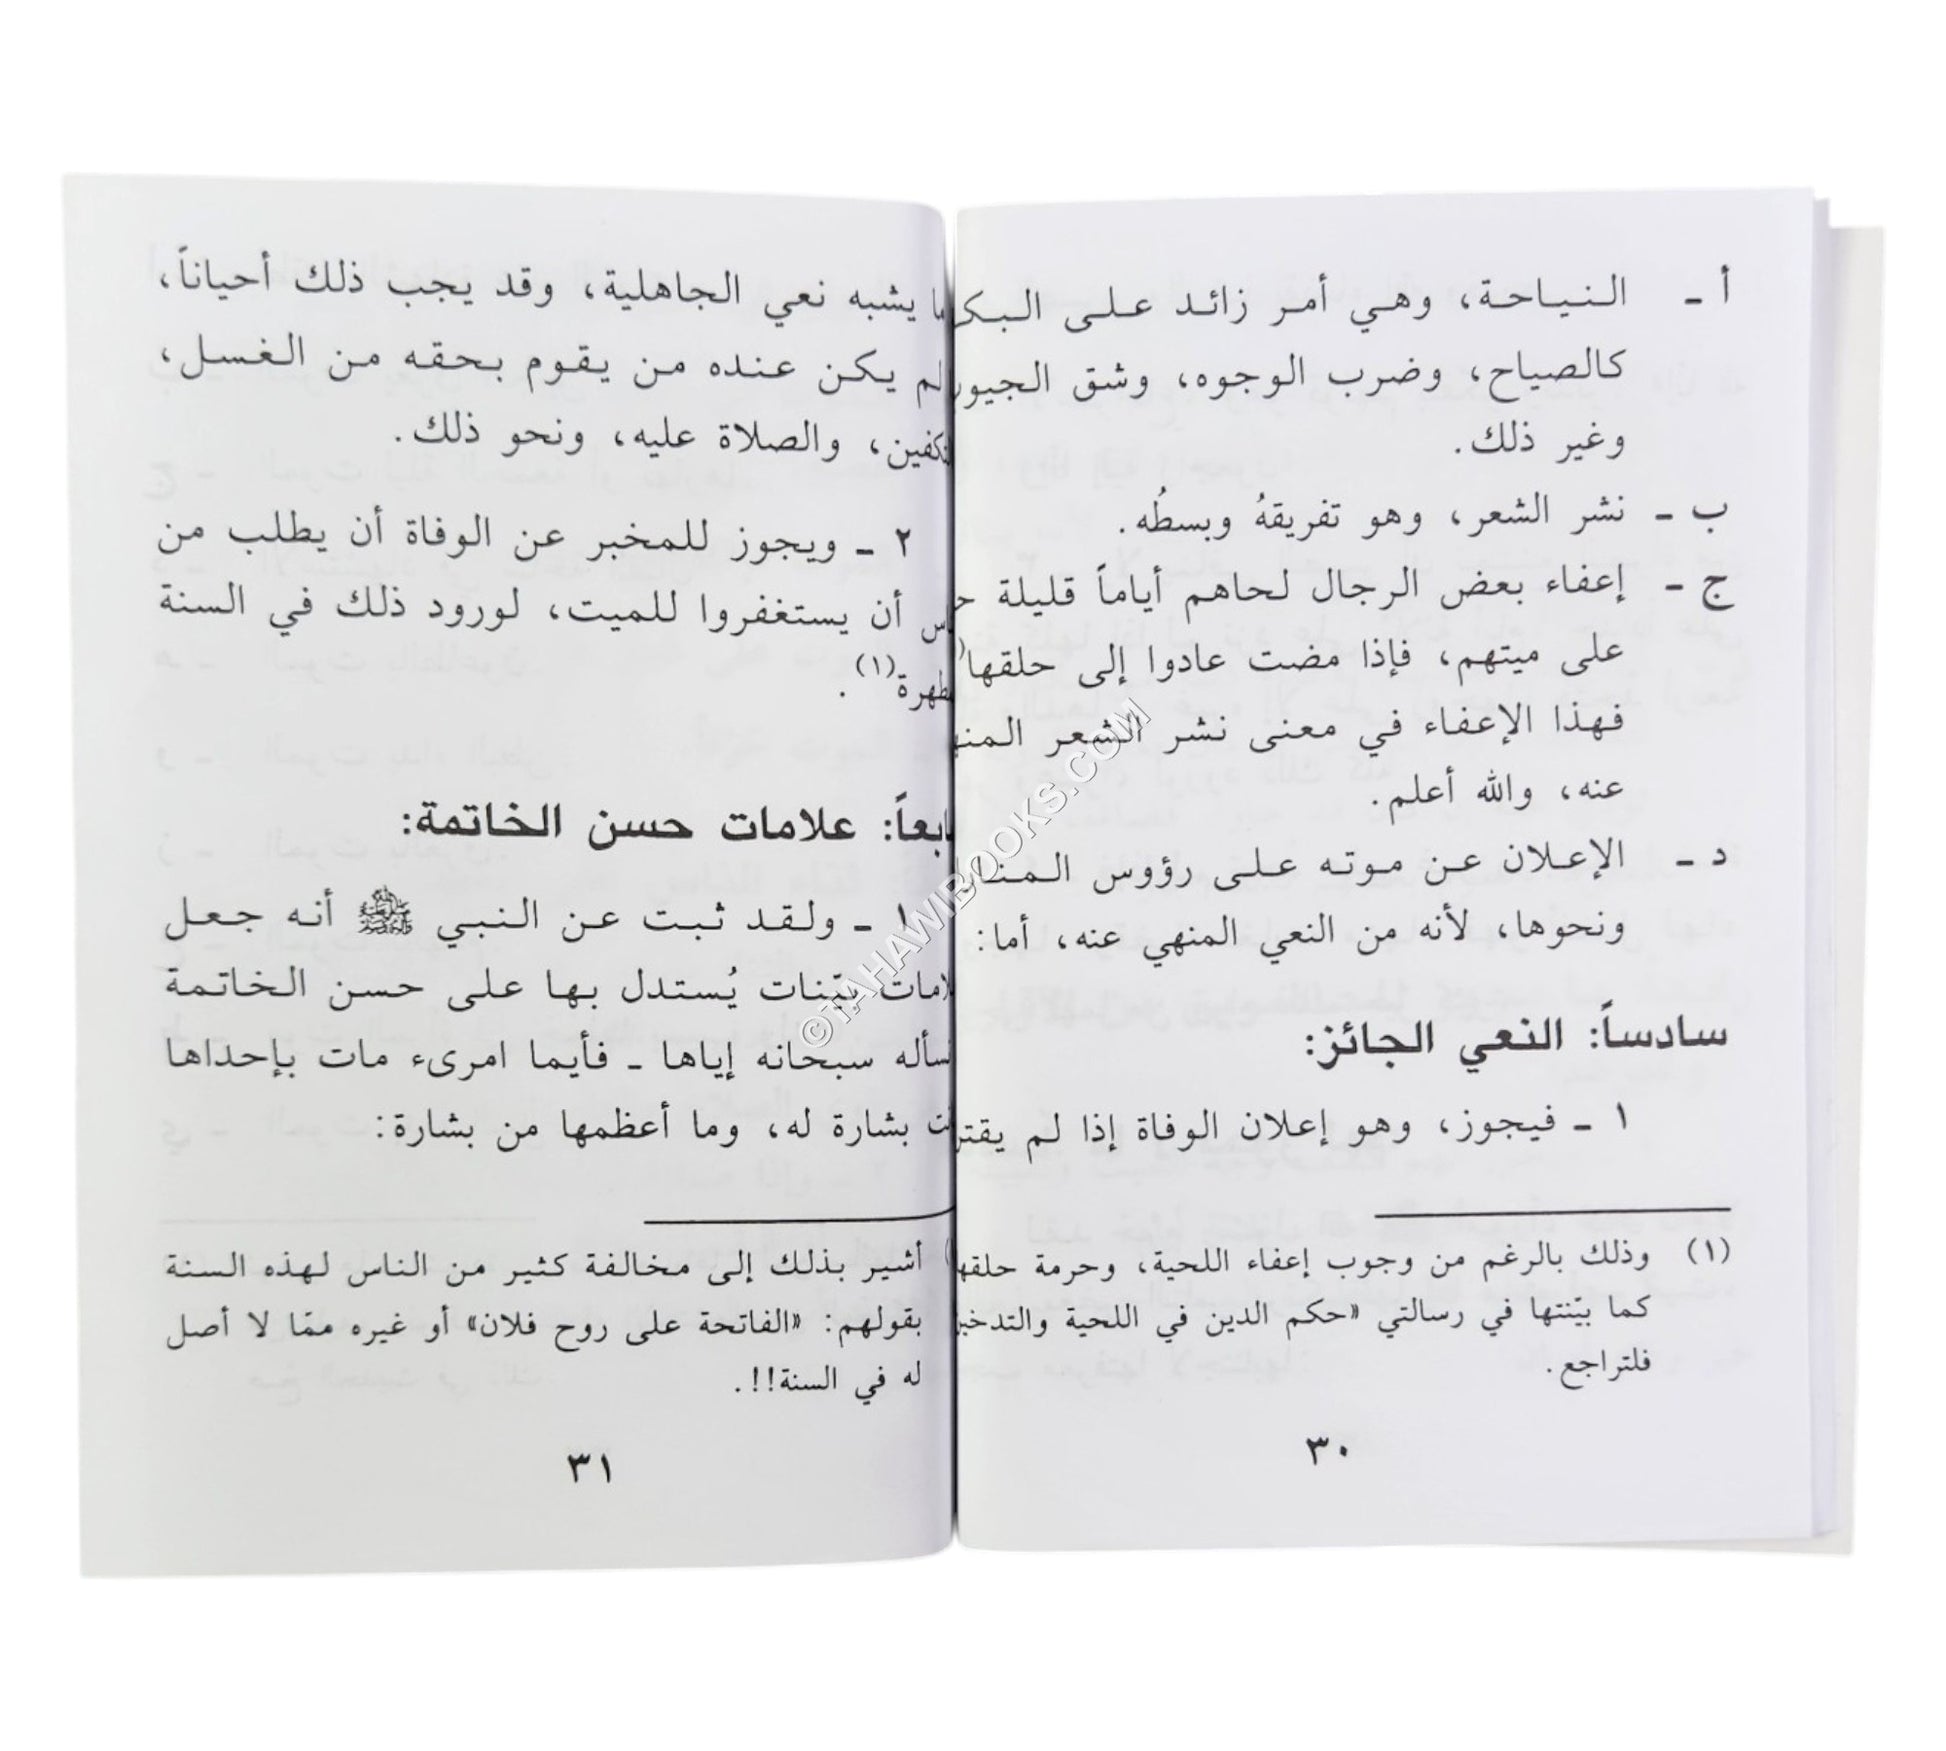 أ ـ النياحة، وهي أمر زائد على
كالصياح، وضرب الوجوه، وشق
وغير ذلك.
ب ـ نشر الشعر، وهو تفريقهُ وبسطُه.
ج ـ إعفاء بعض الرجال لحاهم أياماً قليلة
على ميتهم، فإذا مضت عادوا إلى حلقها
فهذا الإعفاء في معنى نشر الشعر
عنه، والله أعلم.
د ـ الإعلان عن موته على رؤوس
ونحوها، لأنه من النعي المنهي عنه، أما:
سادساً: النعي الجائز:
١ ـ فيجوز، وهو إعلان الوفاة إذا لم
(١) وذلك بالرغم من وجوب إعفاء اللحية، وحرمة
كما بيّنتها في رسالتي «حكم الدين في اللحية
فلتراجع.
٣٠
يشبه نعي الجاهلية، وقد يجب ذلك أحياناً،
لم يكن عنده من يقوم بحقه من الغسل،
والصلاة عليه، ونحو ذلك.
٢ ـ ويجوز للمخبر عن الوفاة أن يطلب من
أن يستغفروا للميت، لورود ذلك في السنة
(١).
علامات حسن الخاتمة:
١ ـ ولقد ثبت عن النبي ﷺ أنه جعل
بيّنات يُستدل بها على حسن الخاتمة
سبحانه إياها ـ فأيما امرىء مات بإحداها
بشارة له، وما أعظمها من بشارة:
أشير بذلك إلى مخالفة كثير من الناس لهذه السنة
بقولهم: «الفاتحة على روح فلان» أو غيره ممّا لا أصل
له في السنة!!.
٣١
©TAHAWIBOOKS.COM